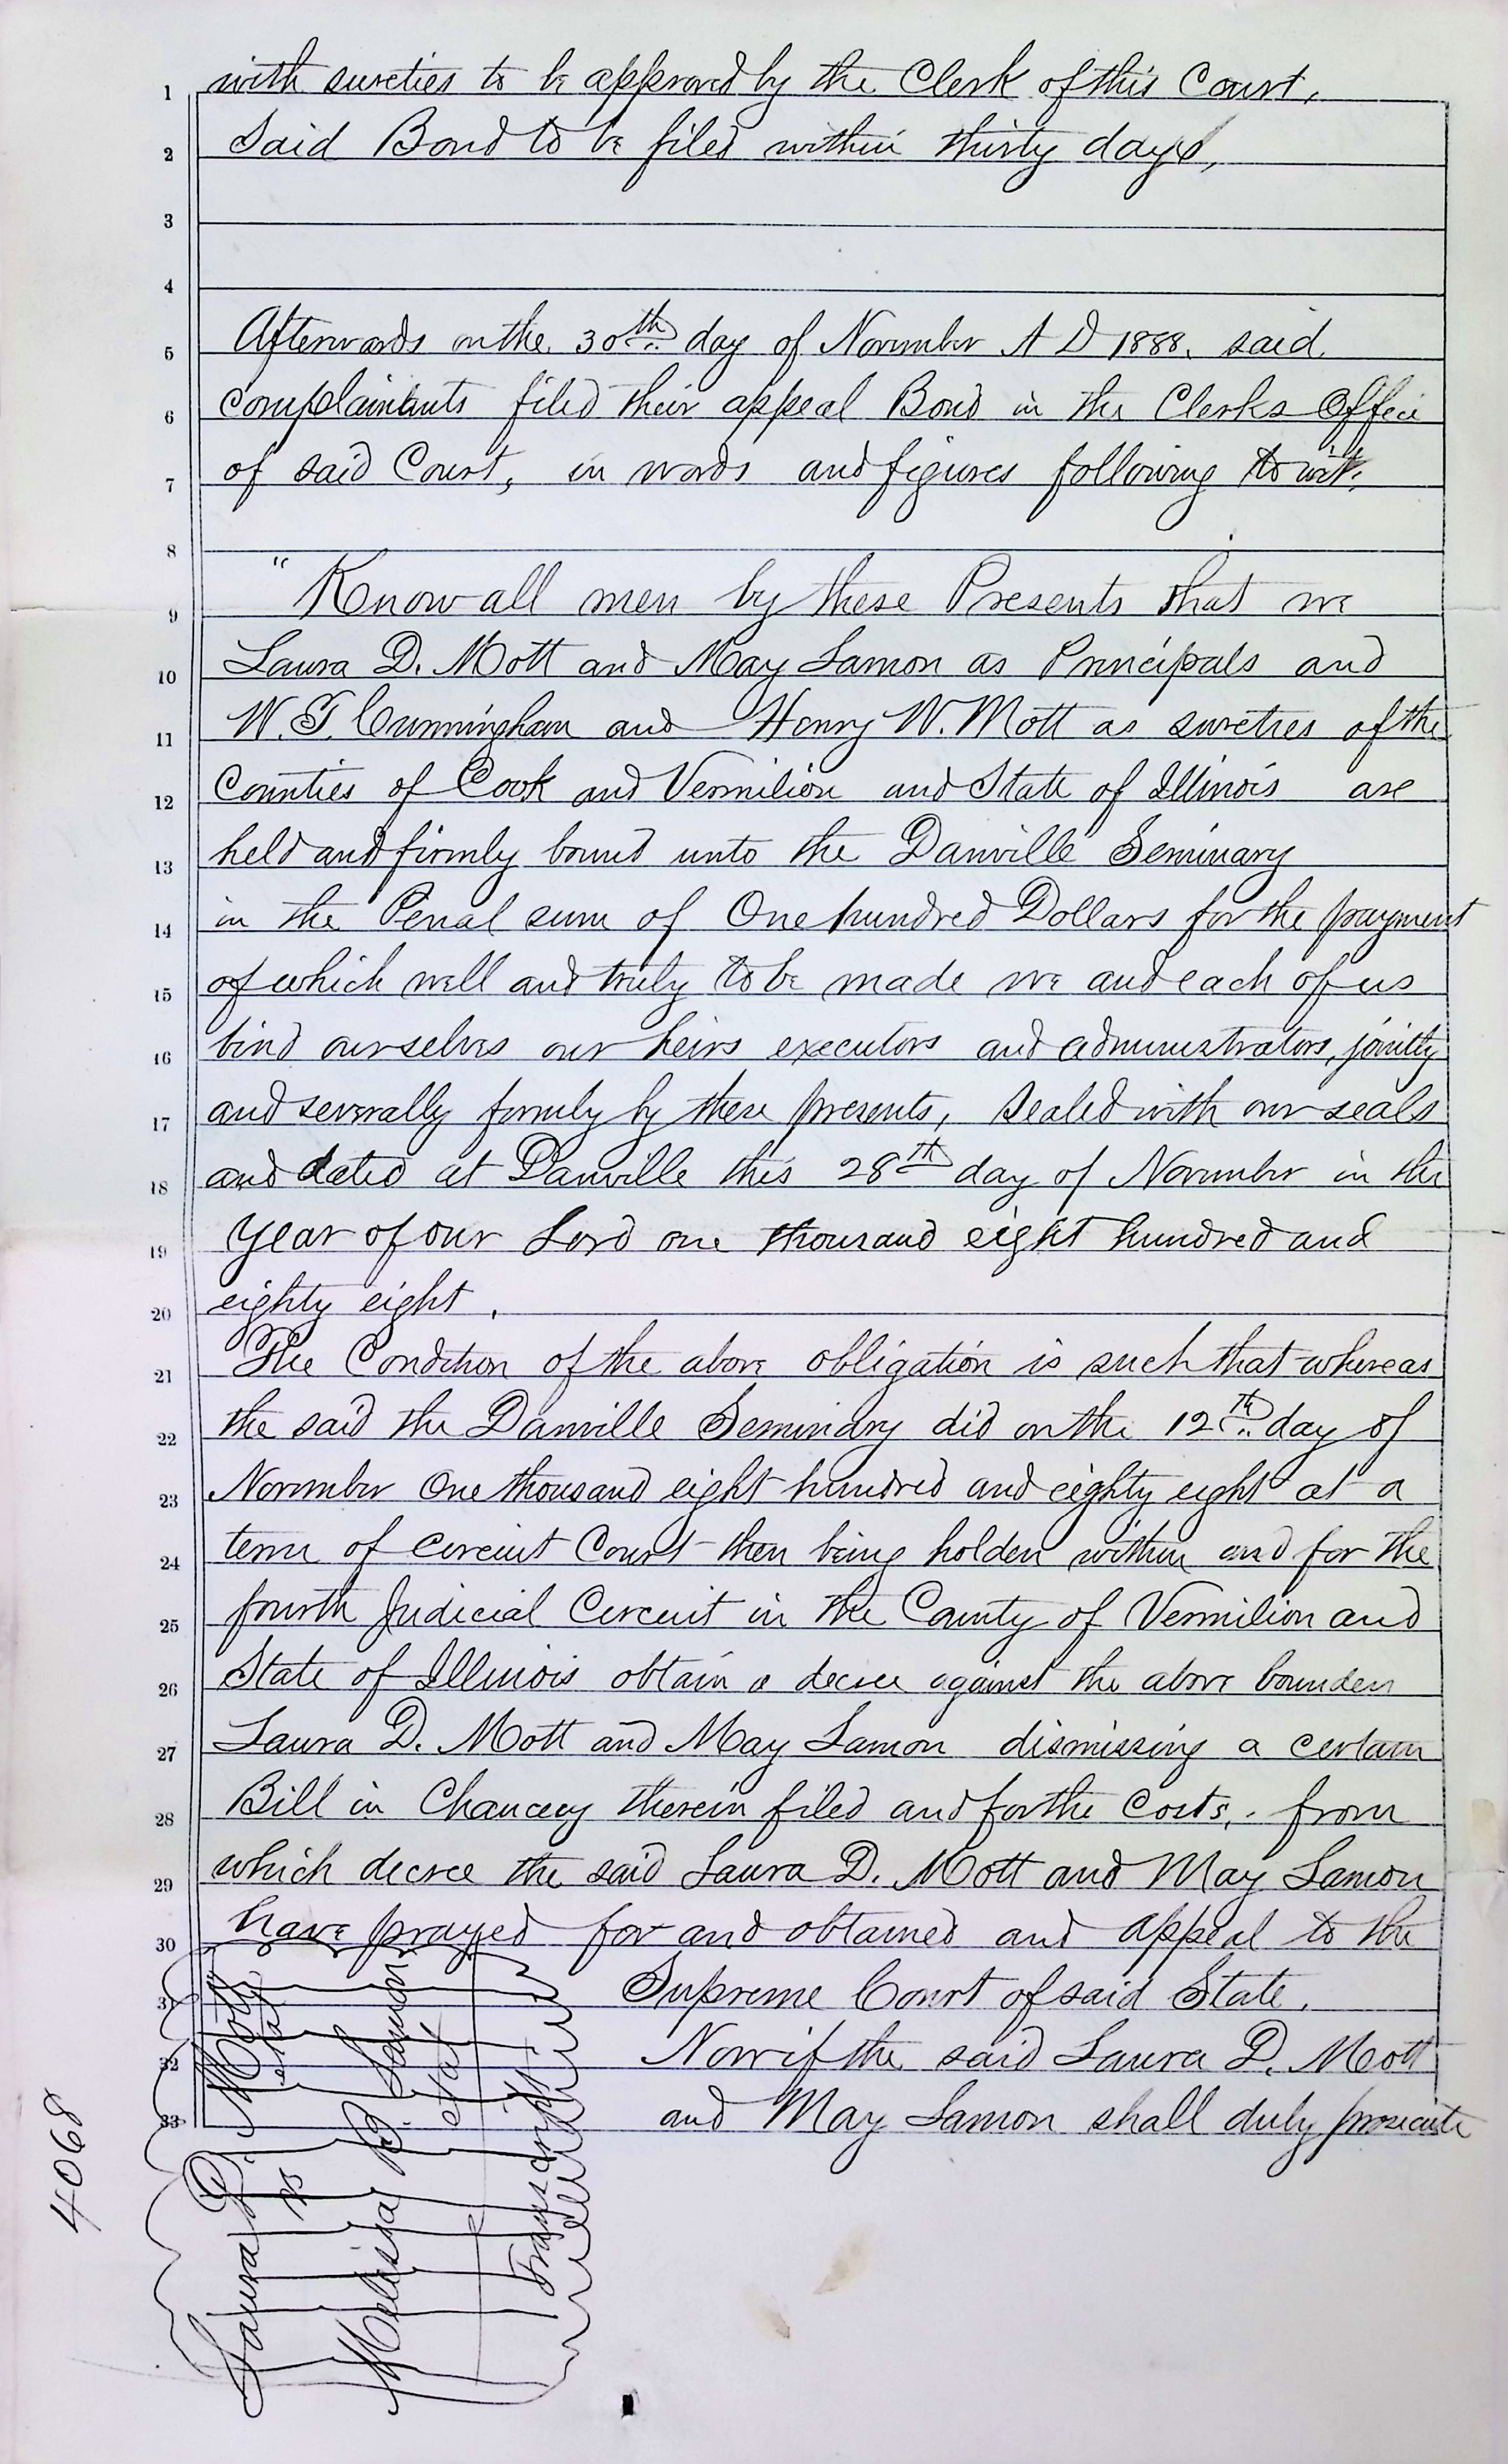 1 with sureties to be approved by the Clerk of this Court,
2 Said Bond to be filed within thirty days,
3
4
5 Afterwards on the 30th day of November A D 1888. said
6 complainants filed their appeal Bond in the Clerks Office
7 of said Court, in words and figures following to wit,
8
9 " Know all men by these Presents that we
10 Laura D. Mott and May Lamon as Principals and
11 W. T. Cunningham and Henry W. Mott as sureties of the
12 Counties of Cook and Vermilion and State of Illinois are
13 held and firmly bound unto the Danville Seminary
14 in the Penal sum of One hundred Dollars for the payment
15 of which well and truly to be made we and each of us
16 bind ourselves our heirs executors and administrators, jointly
17 and severally firmly by these presents, Sealed with our seals
18 and dated at Danville this 28th day of November in the
19 Year of our Lord one thousand eight hundred and
20 eighty eight.
21 The Condition of the above obligation is such that whereas
22 the said the Danville Seminary did on the 12th day of
23 November One thousand eight hundred and eighty eight at a
24 term of circuit Court then being holden within and for the
25 fourth Judicial Circuit in the County of Vermilion and
26 State of Illinois obtain a decree against the above bounden
27 Laura D. Mott and May Lamon dismissing a certain
28 Bill in Chancery therein filed and for the Costs, from
29 which decree the said Laura D. Mott and May Lamon
30 have prayed for and obtained and appeal to the
31 Supreme Court of said State.
32 Now if the said Laura D. Mott
33 and May Lamon shall duly prosecute
Laura D. Mott
et al
vs
Melissa D. Lamon
et al
Transcript
4068